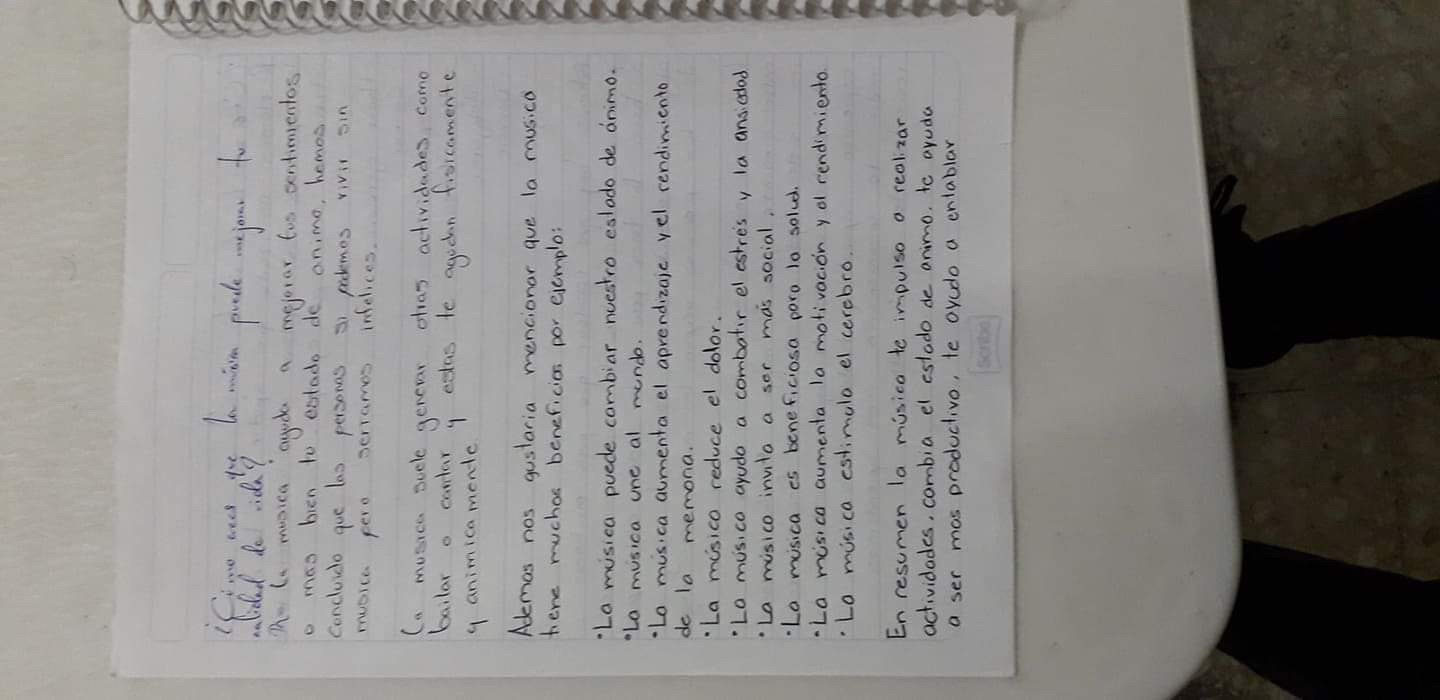 ¿Cómo crees que la música puede mejorar tu
calidad de vida?
La musica ayuda a mejorar tus sentimientos
o mas bien tu estado de animo, hemos
concluido que las personas si podemos vivir sin
musica pero seriamos infelices.
La musica suele generar otras actividades como
bailar o cantar y estas te ayudan fisicamente
y animicamente
Ademas nos gustaria mencionar que la musica
tiene muchos beneficios por ejemplo:
•La música puede cambiar nuestro estado de ánimo.
•La música une al mundo.
•La música aumenta el aprendizaje y el rendimiento
de la memoria.
•La música reduce el dolor.
•La música ayuda a combatir el estrés y la ansiedad
•La música invita a ser más social.
•La música es beneficiosa para la salud.
•La música aumenta la motivación y el rendimiento.
•La música estimula el cerebro.
En resumen la música te impulsa a realizar
actividades, cambia el estado de animo, te ayuda
a ser mas productivo, te ayuda a entablar
scribe